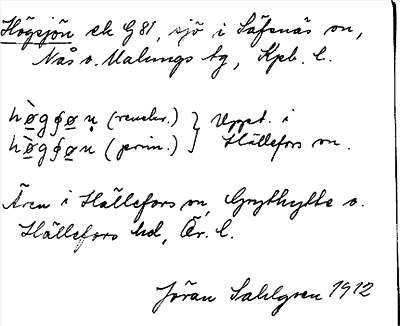 Högsjön ek G81, sjö i Säfsnäs sn,
Nås o. Malungs tg, Kpb. l.
hø̀gʂøṇ (renskr.) } Uppt. i
hø̀gʂøn (prim.) } Hällefors sn.
Ären i Hällefors sn, Grythytte o.
Hällefors hd, Ör. l.
Jöran Sahlgren 1912